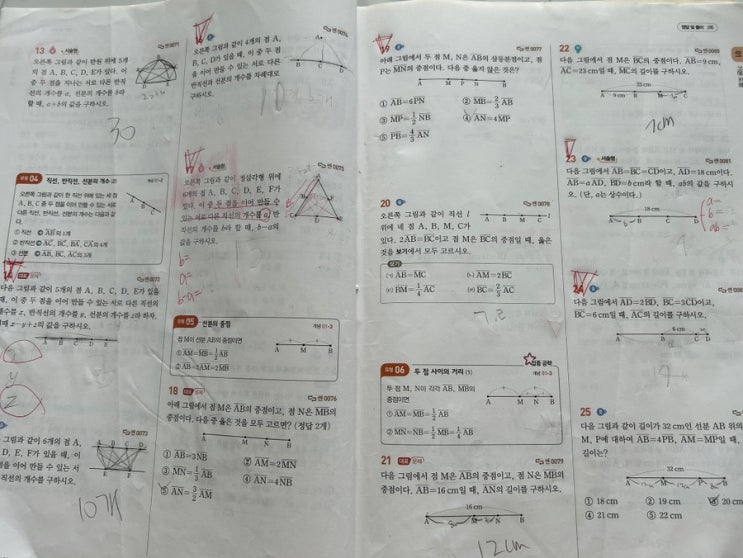 13 서술형
오른쪽 그림과 같이 반원 위에 5개
의 점 A, B, C, D, E가 있다. 이
중 두 점을 지나는 서로 다른 반직
선의 개수를 a, 선분의 개수를 b라
할 때, a+b의 값을 구하시오.
30
유형 04 직선, 반직선, 선분의 개수 (2)
오른쪽 그림과 같이 한 직선 위에 있는 세 점
A, B, C 중 두 점을 이어 만들 수 있는 서로
다른 직선, 반직선, 선분의 개수는 다음과 같
다.
다음 그림과 같이 5개의 점 A, B, C, D, E가 있을
때, 이 중 두 점을 이어 만들 수 있는 서로 다른 직선의
개수를 x, 반직선의 개수를 y, 선분의 개수를 z라 하자.
이때 x-y+z의 값을 구하시오.
A B C D E
y
z
그림과 같이 6개의 점 A,
D, E, F가 있을 때, 이 중
점을 이어 만들 수 있는 서
직선의 개수를 구하시오.
10개
오른쪽 그림과 같이 4개의 점 A,
B, C, D가 있을 때, 이 중 두 점
을 이어 만들 수 있는 서로 다른
반직선과 선분의 개수를 차례대로
구하시오.
서술형
오른쪽 그림과 같이 정삼각형 위에
6개의 점 A, B, C, D, E, F가
있다. 이 중 두 점을 이어 만들 수
있는 서로 다른 직선의 개수를 a,
반직선의 개수를 b라 할 때, b-a의
값을 구하시오.
b=
a=
b-a=
유형 05 선분의 중점
개념 01-3
점 M이 선분 AB의 중점이면
① AM=MB=1/2 AB
② AB=2AM=2MB
A M B
18 대표 문제
아래 그림에서 점 M은 AB의 중점이고, 점 N은 MB의
중점이다. 다음 중 옳은 것을 모두 고르면? (정답 2개)
A M N B
① AB=3NB
② AM=2MN
③ MN=1/3 AB
④ AN=4NB
⑤ AN=3/2 AM
19
아래 그림에서 두 점 M, N은 AB의 삼등분점이고, 점
P는 MN의 중점이다. 다음 중 옳지 않은 것은?
A M P N B
① AB=6PN
② MB=2/3 AB
③ MP=1/2 NB
④ AN=4MP
⑤ PB=4/3 AN
20
오른쪽 그림과 같이 직선 l
위에 네 점 A, B, M, C가
있다. 2AB=BC이고 점 M은 BC의 중점일 때, 옳은
것을 보기에서 모두 고르시오.
보기
ㄱ. AB=MC
ㄴ. AM=2BC
ㄷ. BM=1/4 AC
ㄹ. BC=2/3 AC
유형 06 두 점 사이의 거리 (1)
개념 01-3
두 점 M, N이 각각 AB, MB의
중점이면
① AM=MB=1/2 AB
② MN=NB=1/2 MB=1/4 AB
21 대표 문제
다음 그림에서 점 M은 AB의 중점이고, 점 N은 MB의
중점이다. AB=16 cm일 때, AN의 길이를 구하시오.
16 cm
A M N B
12cm
22
다음 그림에서 점 M은 BC의 중점이다. AB=9 cm,
AC=23 cm일 때, MC의 길이를 구하시오.
23 cm
A 9 cm B M C
7cm
23 서술형
다음 그림에서 AB=BC=CD이고, AD=18 cm이다.
AB=a AD, BD=b cm라 할 때, ab의 값을 구하시
오. (단, a는 상수이다.)
18 cm
A B C D
a=
b=
ab=
24
다음 그림에서 AD=2BD, BC=3CD이고,
BC=6 cm일 때, AC의 길이를 구하시오.
6 cm
25
다음 그림과 같이 길이가 32 cm인 선분 AB 위의
M, P에 대하여 AB=4PB, AM=MP일 때,
길이는?
32 cm
① 18 cm
② 19 cm
③ 20 cm
④ 21 cm
⑤ 22 cm